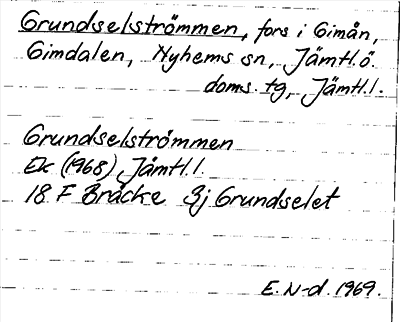 Grundselströmmen, fors i Gimån,
Gimdalen, Nyhems sn, Jämtl. ö.
doms. tg, Jämtl. l.
Grundselströmmen
Ek (1968) Jämtl. l.
18 F Bräcke Sj Grundselet
E. N-d. 1969.